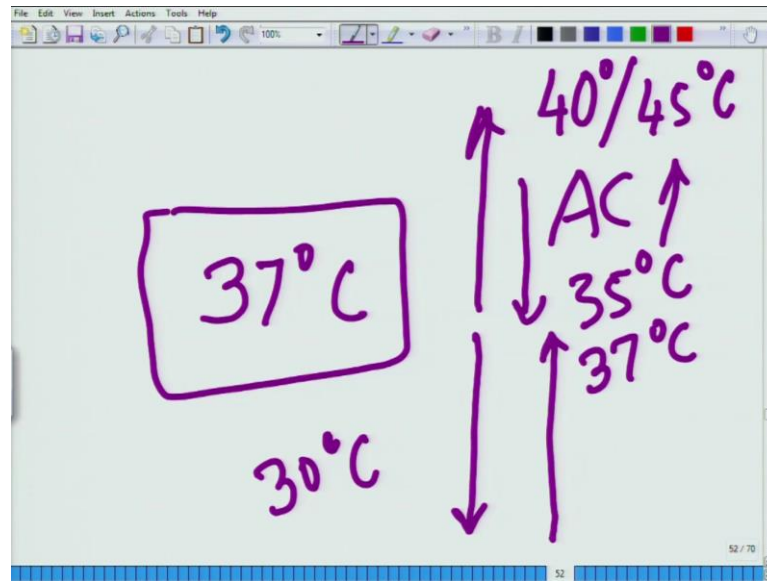 File Edit View Insert Actions Tools Help
100%
B I
40°/45°C
AC
37°C
35°C
37°C
30°C
52 / 70
52